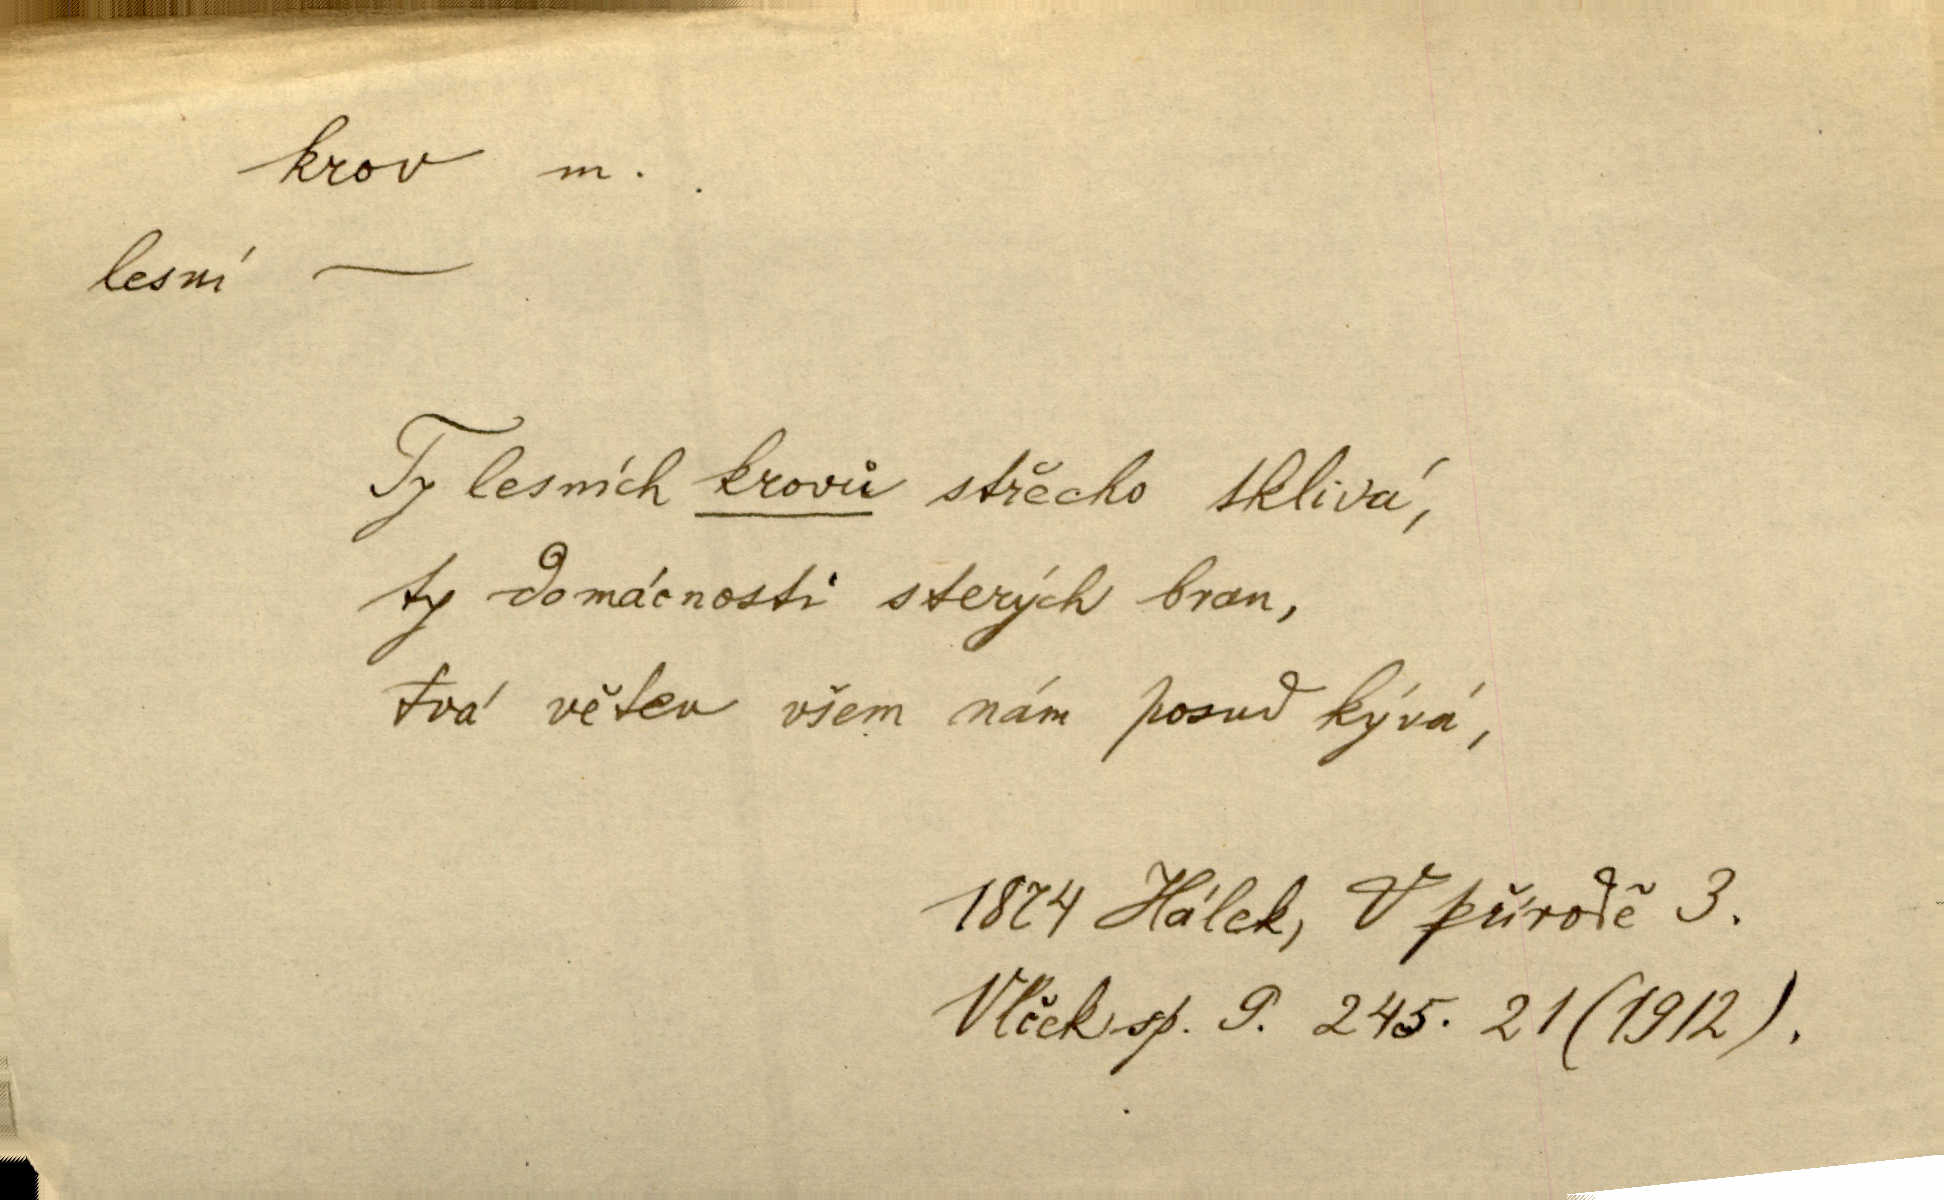 krov m.
lesní —
Ty lesních krovů střecho tklivá,
ty domácnosti sterých bran,
tvá větev všem nám posud kývá,
1874 Hálek, V přírodě 3.
Vlček sp. 9. 245. 21 (1912).